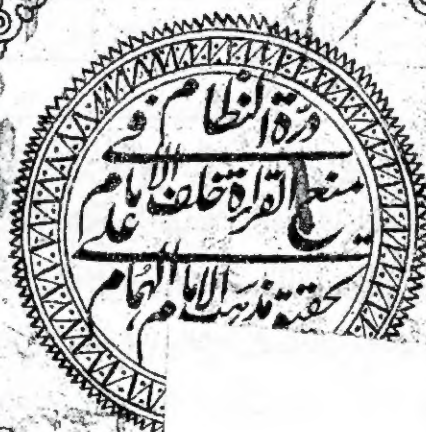 درة النظام في
منع القراءة خلف الامام على
تحقيق مذهب الامام الهمام